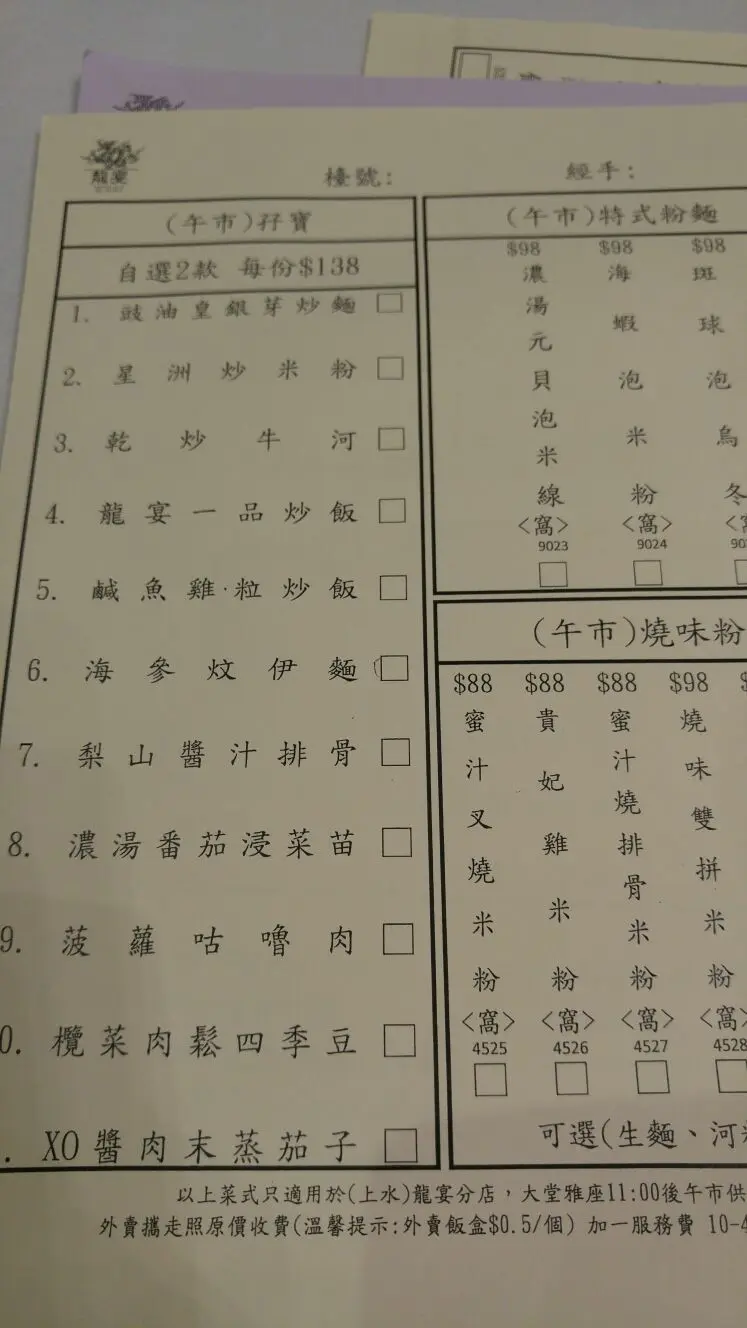 龍宴
檯號:
經手:
(午市)孖寶
自選2款 每份$138
1. 豉油皇銀芽炒麵
2. 星洲炒米粉
3. 乾炒牛河
4. 龍宴一品炒飯
5. 鹹魚雞·粒炒飯
6. 海參炆伊麵
7. 梨山醬汁排骨
8. 濃湯番茄浸菜苗
9. 菠蘿咕嚕肉
0. 欖菜肉鬆四季豆
. XO醬肉末蒸茄子
(午市)特式粉麵
$98 $98 $98
濃湯元貝泡米線
<窩>
9023
海蝦泡米粉
<窩>
9024
斑球泡烏冬
(午市)燒味粉
$88 $88 $88 $98
蜜汁叉燒米粉
<窩>
4525
貴妃雞米粉
<窩>
4526
蜜汁燒排骨米粉
<窩>
4527
燒味雙拼米粉
<窩>
4528
可選(生麵、河
以上菜式只適用於(上水)龍宴分店，大堂雅座11:00後午市供
外賣攜走照原價收費(溫馨提示:外賣飯盒$0.5/個) 加一服務費 10-4